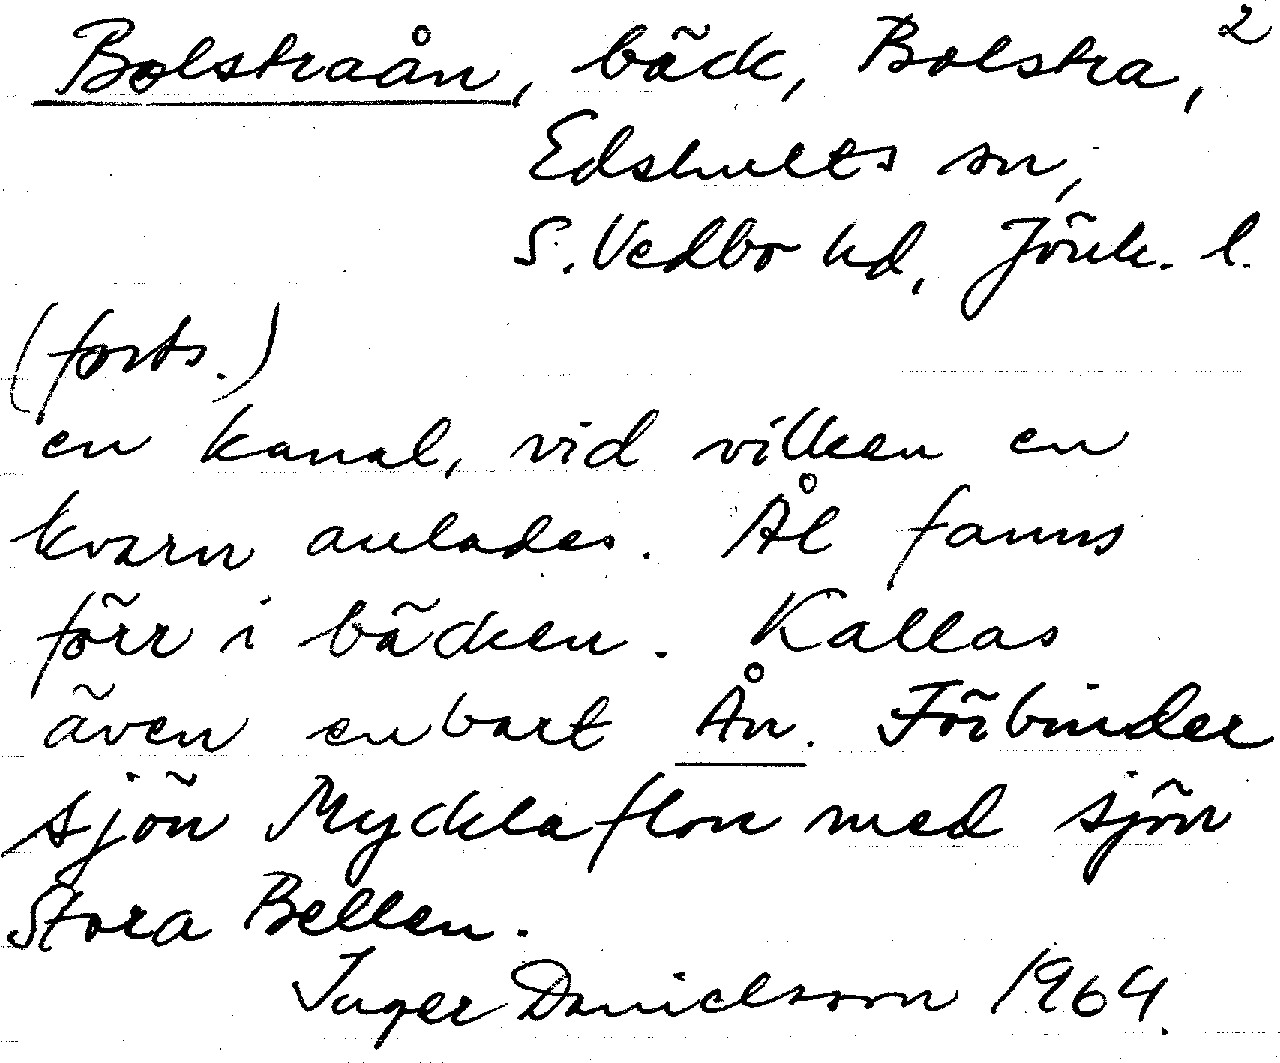 Bolstraån, bäck, Bolstra, 2
Edshults sn,
S. Vedbo hd, Jönk. l.
(forts.)
en kanal, vid vilken en
kvarn anlades. Ål fanns
förr i bäcken. Kallas
även enbart Ån. Förbinder
sjön Mycklaflon med sjön
Stora Bellen.
Inger Danielsson 1964.